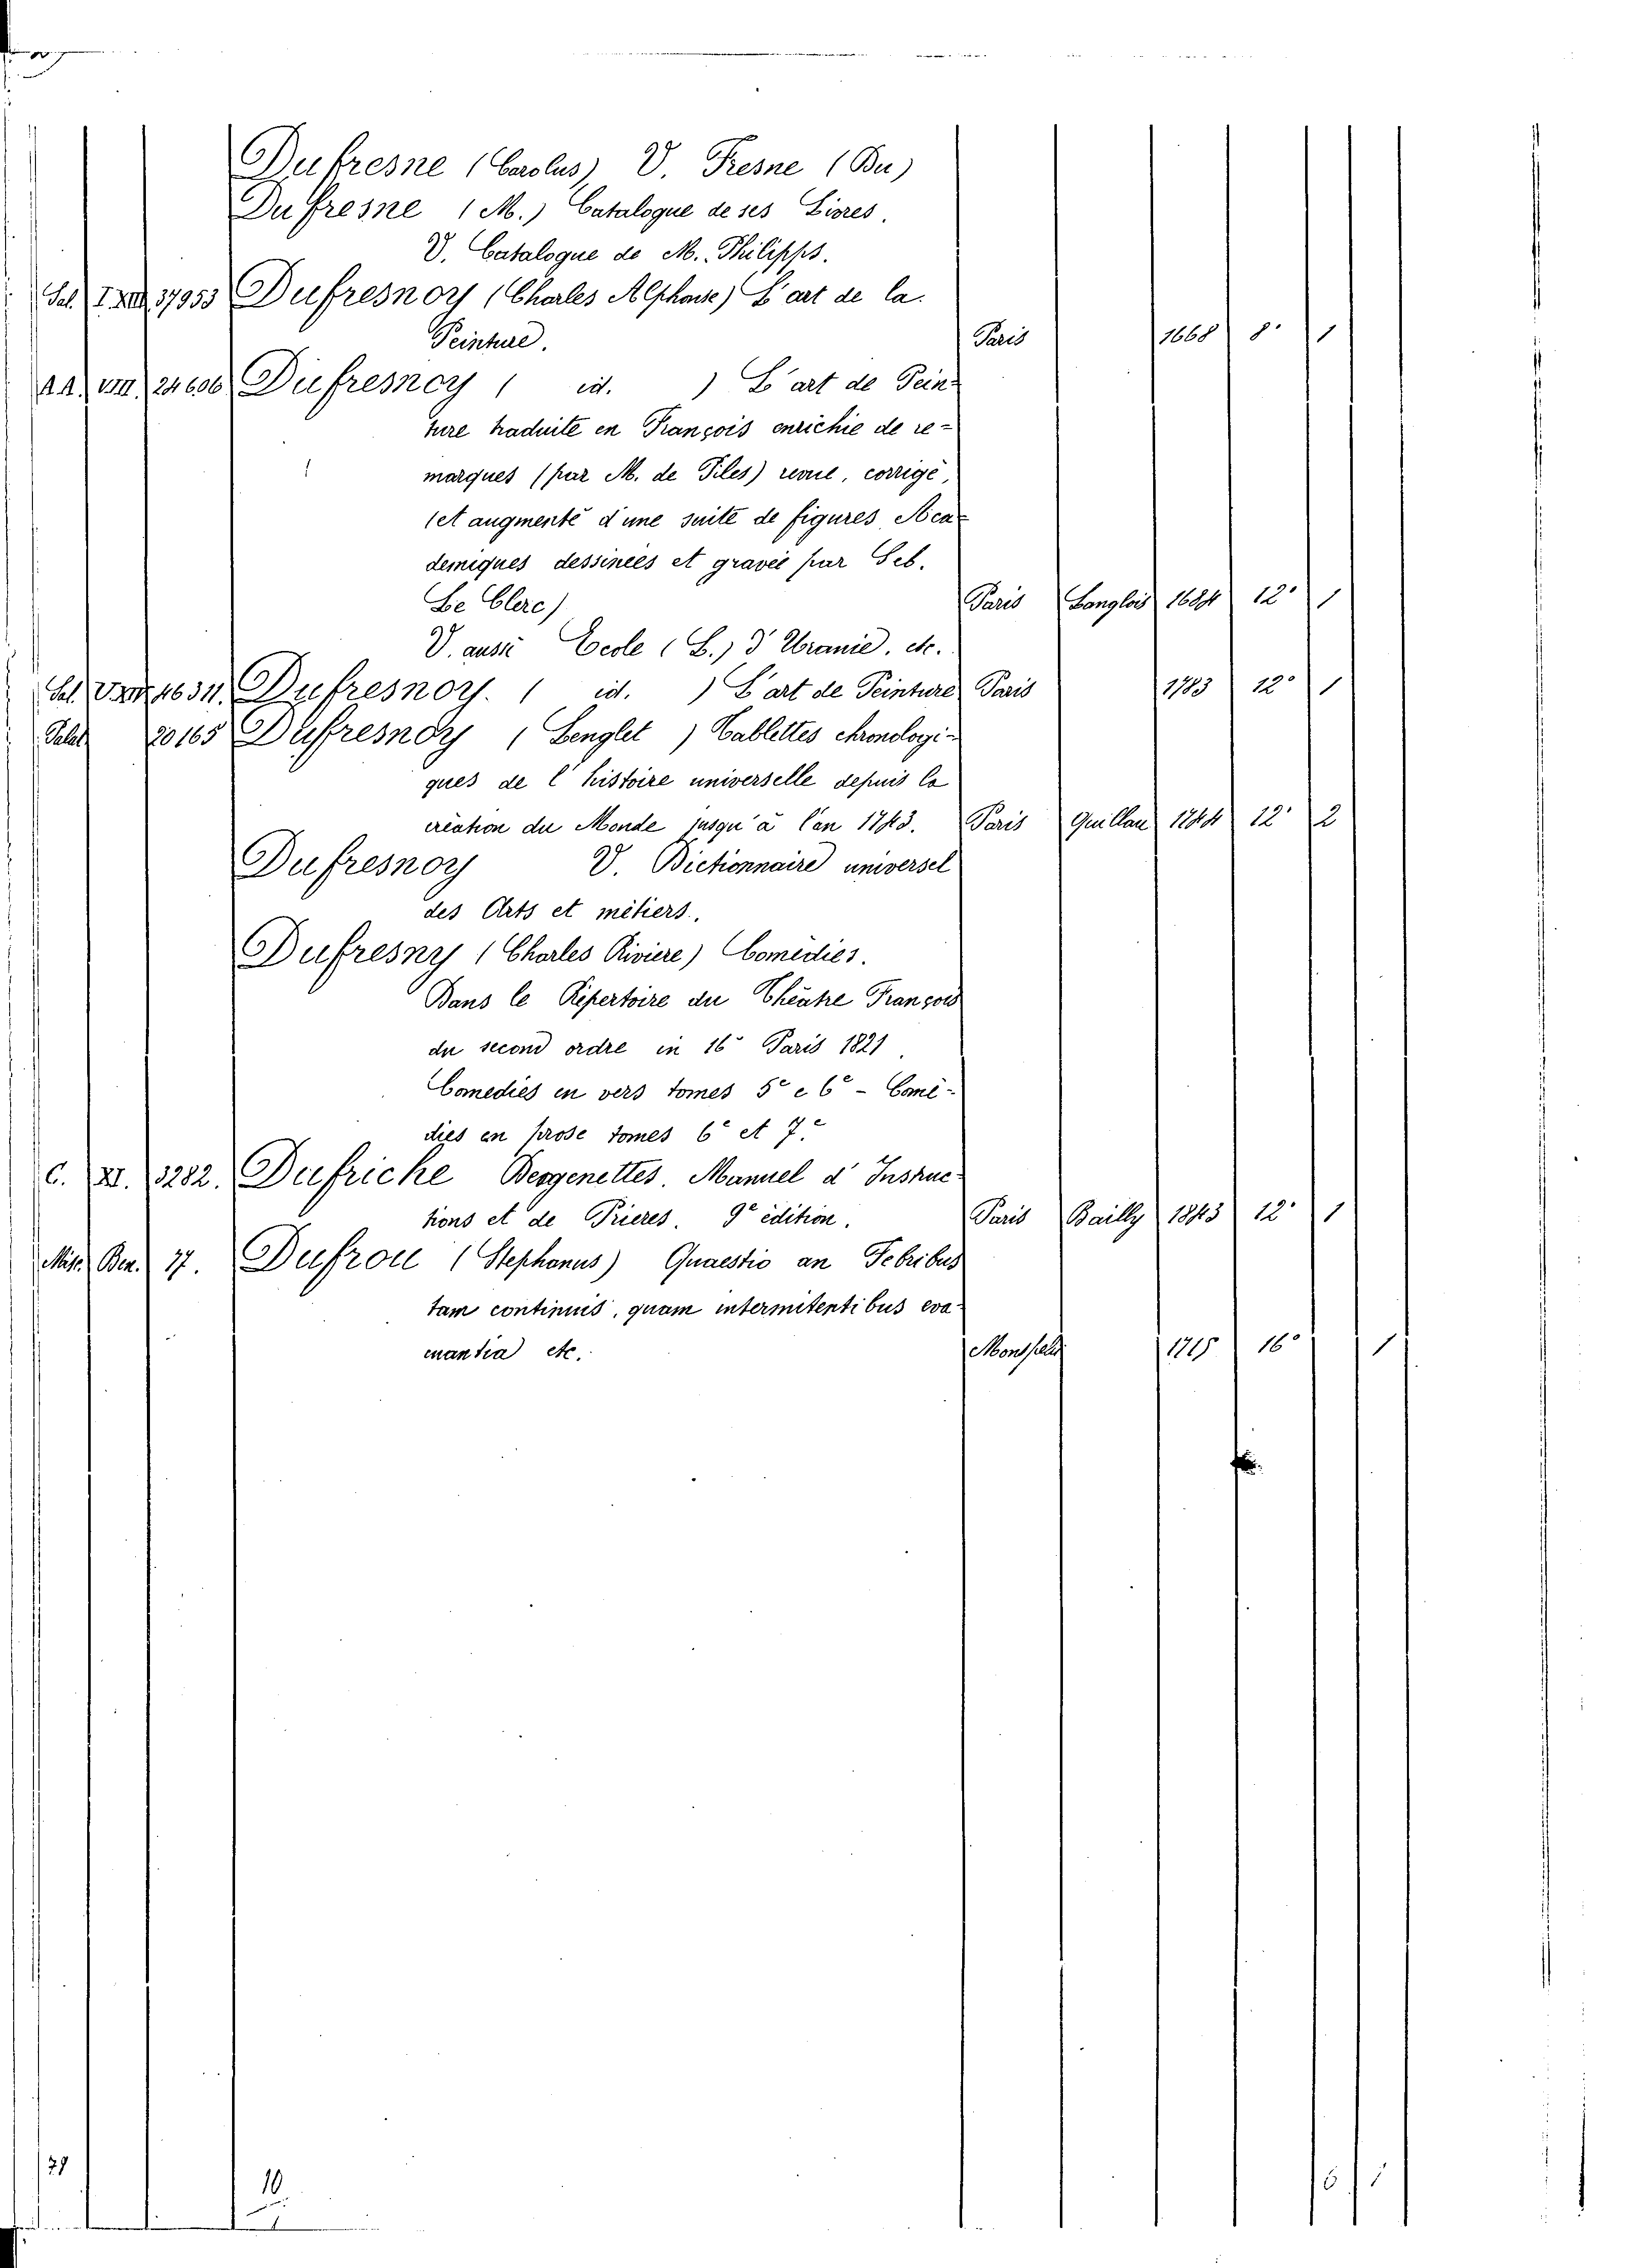 Dufresne (Carolus) V. Fresne (Du)
Dufresne (M.) Catalogue de ses Livres.
V. Catalogue de M. Philipps.
Sal. 37953 Dufresnoy (Charles Alphonse) L'art de la
Peinture. Paris 1668 8° 1
AA. VIII. 24606 Dufresnoy ( id. ) L'art de Pein-
ture traduite en François enrichie de re=
marques (par M. de Piles) revue, corrigé,
(et augmenté d'une suite de figures Aca=
demiques dessinées et gravée par Seb.
Le Clerc) Paris Langlois 1684 12° 1
V. aussi Ecole (L.) d'Uranie. etc.
Sal. 1631. Dufresnoy. ( id. ) L'art de Peinture Paris 1783 12° 1
Palat. 20165 Dufresnoy (Lenglet ) Tablettes chronologi-
ques de l'histoire universelle depuis la
création du Monde jusqu'à l'an 1743. Paris 1744 12° 2
Dufresnoy V. Dictionnaire universel
des Arts et métiers.
Dufresny (Charles Riviere) Comédies.
Dans le Répertoire du Théatre François
du second ordre in 16° Paris 1821.
Comedies en vers tomes 5e e 6e - Comé-
dies en prose tomes 6e et 7e
C. XI. 3282. Dufriche Desgenettes. Manuel d'Instruc-
tions et de Prieres. 9e édition. Paris Bailly 1843 12° 1
Misc. Ben. 77. Dufrou (Stephanus) Quaestio an Febribus
tam continuis, quam intermitentibus eva-
cuantia etc. Monspell 1715 16° 1
29
10
6 1